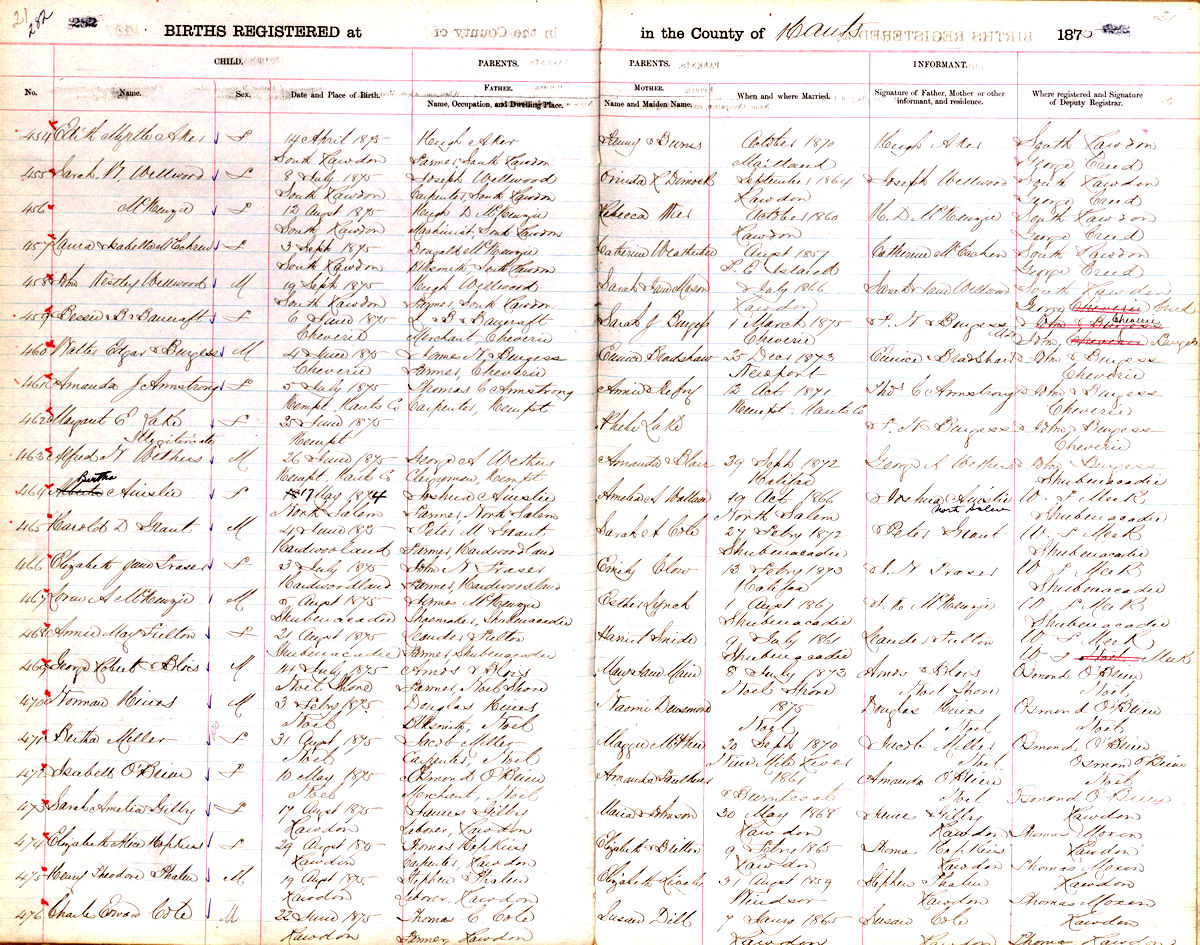 21 282 282
BIRTHS REGISTERED at in the County of Hants 187
CHILD. PARENTS. PARENTS. INFORMANT.
No. Name. Sex. Date and Place of Birth. FATHER. Name, Occupation, and Dwelling Place. MOTHER. Name and Maiden Name. When and where Married. Signature of Father, Mother or other informant, and residence. Where registered and Signature of Deputy Registrar.
454 Edith Myrtle Aker F 14 April 1875 Hugh Aker Fanny Burns October 1870 Hugh Aker South Rawdon
South Rawdon Farmer, South Rawdon Maitland George Creed
455 Sarah Wellwood F 8 July 1875 Joseph Wellwood Dimock September 1864 Joseph Wellwood South Rawdon
South Rawdon Carpenter, South Rawdon Rawdon George Creed
456 McKenzie F 12 Augst 1875 Hugh D McKenzie Rebecca Wier October 1860 H. D McKenzie South Rawdon
South Rawdon Machinist, South Rawdon Rawdon George Creed
457 Laura Isabella F 3 Sept 1875 Catherine Augst 1857 Catherine South Rawdon
South Rawdon South Rawdon P. E. Island George Creed
458 John Westley Wellwood M 19 Sept 1875 Hugh Wellwood Sarah Jane Mason July 1866 Sarah Jane Wellwood South Rawdon
South Rawdon Farmer, South Rawdon Rawdon George Creed
459 Bessie B Bancroft F 6 June 1875 B Bancroft Sarah J Burgess 1 March 1875 Burgess John Burgess Cheverie
Cheverie Merchant, Cheverie Cheverie John Burgess
460 Walter Edgar Burgess M 4 June 1875 James N Burgess Eunice Bradshaw 25 Decr 1873 Eunice Bradshaw John Burgess
Cheverie Farmer, Cheverie Newport Cheverie
461 Amanda J Armstrong F 5 July 1875 Thomas C Armstrong Annie 12 Oct 1871 Thos C Armstrong John Burgess
Kempt. Hants Co Carpenter, Kempt Kempt. Hants Co Cheverie
462 Margaret E Lake F 25 June 1875 Phebe Lake Burgess John Burgess
Illegitimate Kempt Cheverie
463 Alfred N Wethers M 26 June 1875 George A Wethers Amanda Blair 29 Sept 1872 George A Wethers John Burgess
Kempt. Hants Co Clergyman, Kempt Halifax Shubenacadie
464 Bertha Ainslie F 17 May 1874 Joshua Ainslie Amelia A Wallace 19 Oct 1866 Joshua Ainslie W. Meek
North Salem Farmer, North Salem North Salem North Salem Shubenacadie
465 Harold D Grant M 4 June 1875 Peter M Grant Sarah A Cole 27 Febry 1872 Peter Grant W. Meek
Hardwoodland Farmer, Hardwoodland Shubenacadie Shubenacadie
466 Elizabeth Jane Fraser F 3 July 1875 John N Fraser Emily Blow 13 Febry 1873 J. N Fraser W Meek
Hardwoodland Farmer, Hardwoodland Halifax Shubenacadie
467 A McKenzie M 5 Augst 1875 James McKenzie Esther Lynch Augst 1867 McKenzie W Meek
Shubenacadie Shoemaker, Shubenacadie Shubenacadie Shubenacadie
468 Annie May Fulton F 21 Augst 1875 Leander Fulton Harriet Snide 9 July 1861 Leander Fulton W Meek
Shubenacadie Farmer, Shubenacadie Shubenacadie W Noel Meek
469 George Robert Blois M 14 July 1875 Amos Blois Mary Jane Main 8 July 1873 Amos Blois Osmond O'Brien
Noel Shore Farmer, Noel Shore Noel Shore Noel Shore Noel
470 Norman M 3 Febry 1875 Douglas Naomi Densmond 1875 Douglas Osmond O'Brien
Noel Blksmith, Noel Noel Noel Noel
471 Bertha Miller F 31 Augst 1875 Jacob Miller Maggie 20 Sept 1870 Jacob Miller Osmond O'Brien
Noel Carpenter, Noel Nine Mile River Noel Osmon O'Brien
472 Isabell O'Brien F 10 May 1875 Osmond O'Brien Amanda Faulkner 1861 Amanda O'Brien Noel
Noel Merchant, Noel Burntcoat Noel Osmond O'Brien
473 Sarah Amelia Gilby F 17 Augst 1875 James Gilby Maria Johnson 30 May 1868 James Gilby Rawdon
Rawdon Laborer, Rawdon Rawdon Rawdon Thomas Moxon
474 Elizabeth Alice Hopkins F 29 Augst 1875 Thomas Hopkins Elizabeth Britton 9 Febry 1865 Thomas Hopkins Rawdon
Rawdon Carpenter, Rawdon Rawdon Rawdon Thomas Moxon
475 Henry Theodore Phalen M 19 Augst 1875 Stephen Phalen Elizabeth 31 Augst 1859 Stephen Phalen Rawdon
Rawdon Laborer, Rawdon Windsor Rawdon Thomas Moxon
476 Charles Cole M 22 June 1875 Thomas C Cole Susan Dill 7 Jany 1865 Susan Cole Rawdon
Rawdon Farmer, Rawdon Rawdon Rawdon Thomas